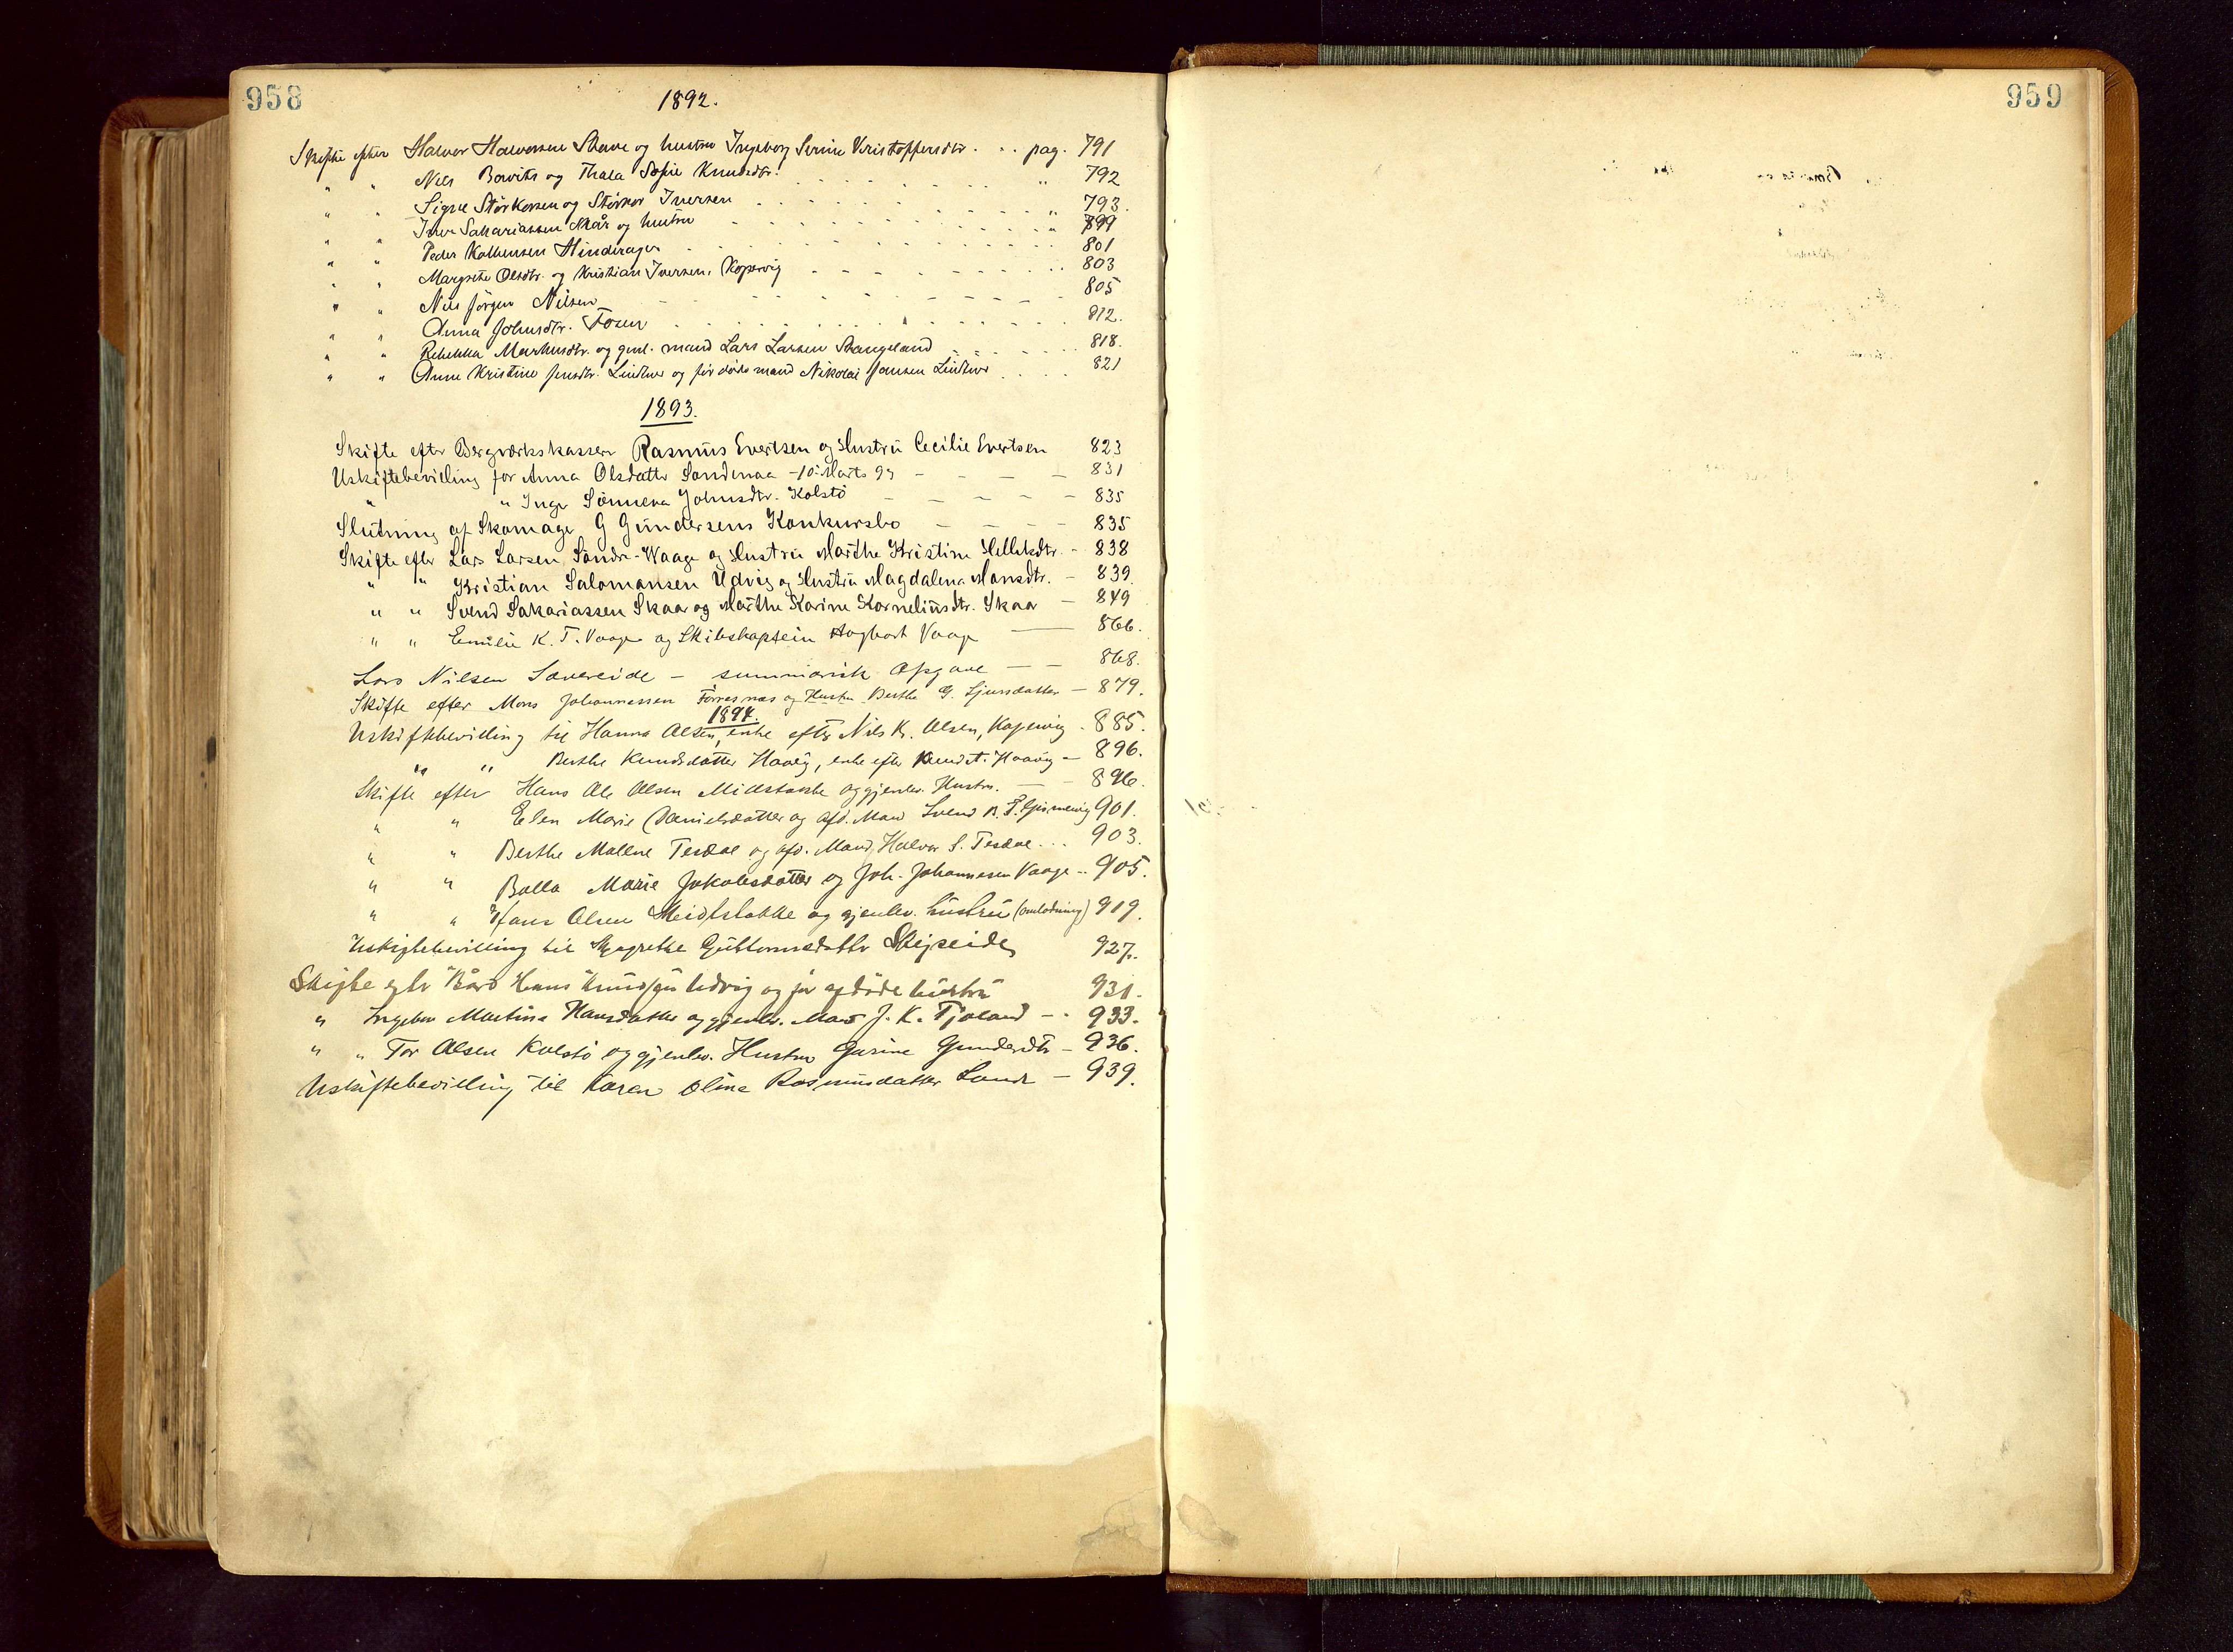 958
1892.
Skifte efter Halvor Halvorsen Skare og hustru Ingeborg Serine Kristoffersdtr. . . pag. 791
" " Nils Bowitz og Thala Sofie Knudsdtr. " 792
" " Signe Størkersen og Størker Iversen " 793.
" " Iver Sakariassen Skår og hustru " 799
" " Peder Kolbensen Hinderager 801
" " Margrete Olsdtr. og Kristian Iversen, Kopervig 803
" " Nils Jörgen Nilsen 805
" " Anna Johnsdtr. Fosen 812.
" " Rebekka Markusdtr. og gjenl. mand Lars Larsen Stangeland 818.
" " Anne Kristine Jensdtr. Lindtner og før døde mand Nikolai Jansen Lindtner 821
1893.
Skifte efter Bergværkskasserer Rasmus Evertsen og Hustru Cecilie Evertsen 823
Uskiftebevilling for Anna Olsdatter Sandenaa - 10' Marts 93 - - - 831
" " Inger Sönneva Johnsdtr. Kolstö - - - 835
Slutning af Skomager G Gundersens Konkursbo - - - 835
Skifte efter Lars Larsen Söndre-Waage og Hustru Marthe Kristine Helliksdtr. - 838
" " Kristian Salomonsen Udvig og Hustru Magdalena Monsdtr. - 839.
" " Svend Sakariassen Skaar og Marthe Karine Korneliusdtr. Skaar - 849
" " Emilie K. T. Vaage og Skibskaptein Hagbart Vaage - 866.
Lars Nilsen Sævereide - summarisk Opgave - - 868.
Skifte efter Mons Johannessen Førresnæs og Hustru Berthe G. Sjursdatter - 879.
1894.
Uskiftebevilling til Hanna Olsen, enke efter Nils K. Olsen, Kopervig - 885.
" " Berthe Knudsdatter Haavig, enke efter Knud A. Haavig - 896.
Skifte efter Hans Ole Olsen Midtstokke og gjenlev. Hustru. - 896.
" " Elen Marie Danielsdatter og afd. Mand Svend B. F. Grimevig 901.
" " Berthe Mallene Tesdal og afd. Mand Halvor S. Tesdal . . . 903.
" " Bolla Marie Jakobsdatter og Joh. Johannesen Vaage . . 905.
" " Hans Olsen Meidtstokke og gjenlev. hustru (omlodning) 919.
Uskiftebevilling til Margrethe Guttormsdatter Skeiseide 927.
Skifte efter Bård Hans Knudsen Udvig og før afdøde hustru 931.
" Ingeborg Martine Hansdatter og gjenlev. Mand J. K. Tjøland - . 933.
" " Tor Olsen Kolstø og gjenlev. Hustru Gurine Gundersdtr - 936.
Uskiftebevilling til Karen Oline Rasmusdatter Sand - 939.
959